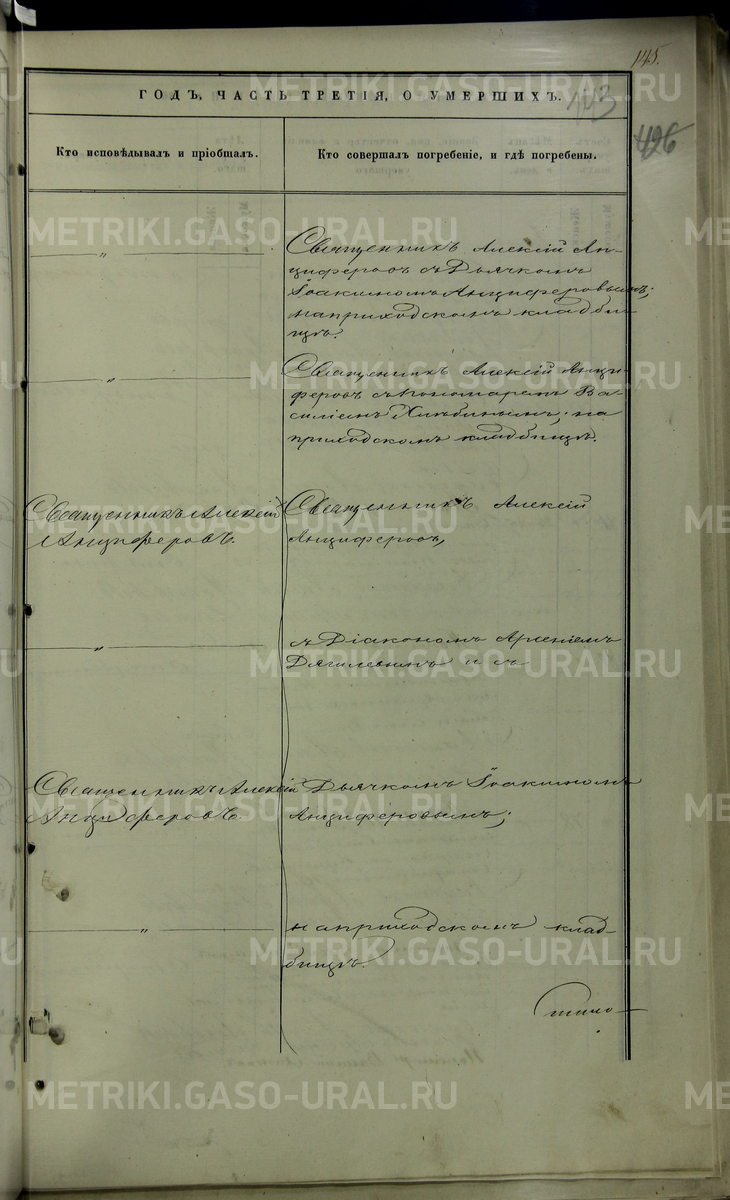 145.
ГОДЪ, ЧАСТЬ ТРЕТІЯ, О УМЕРШИХЪ.
143
426
Кто исповѣдывалъ и пріобщалъ.
Кто совершалъ погребеніе, и гдѣ погребены.
„
Священникъ Алексій Ан-
циферовъ съ Дьячкомъ
Іоакимомъ Анциферовымъ;
на приходскомъ кладби-
щѣ.
„
Священникъ Алексій Анци-
феровъ съ Пономаремъ Ва-
силіемъ Хлѣбинымъ; на
приходскомъ кладбищѣ.
Священникъ Алексій
Анциферовъ.
Священникъ Алексій
Анциферовъ,
„
съ Діакономъ Арсеніемъ
Дягилевымъ и съ
Священникъ Алексій
Анциферовъ.
Дьячкомъ Іоакимомъ
Анциферовымъ;
„
на приходскомъ клад-
бищѣ.
METRIKI.GASO-URAL.RU